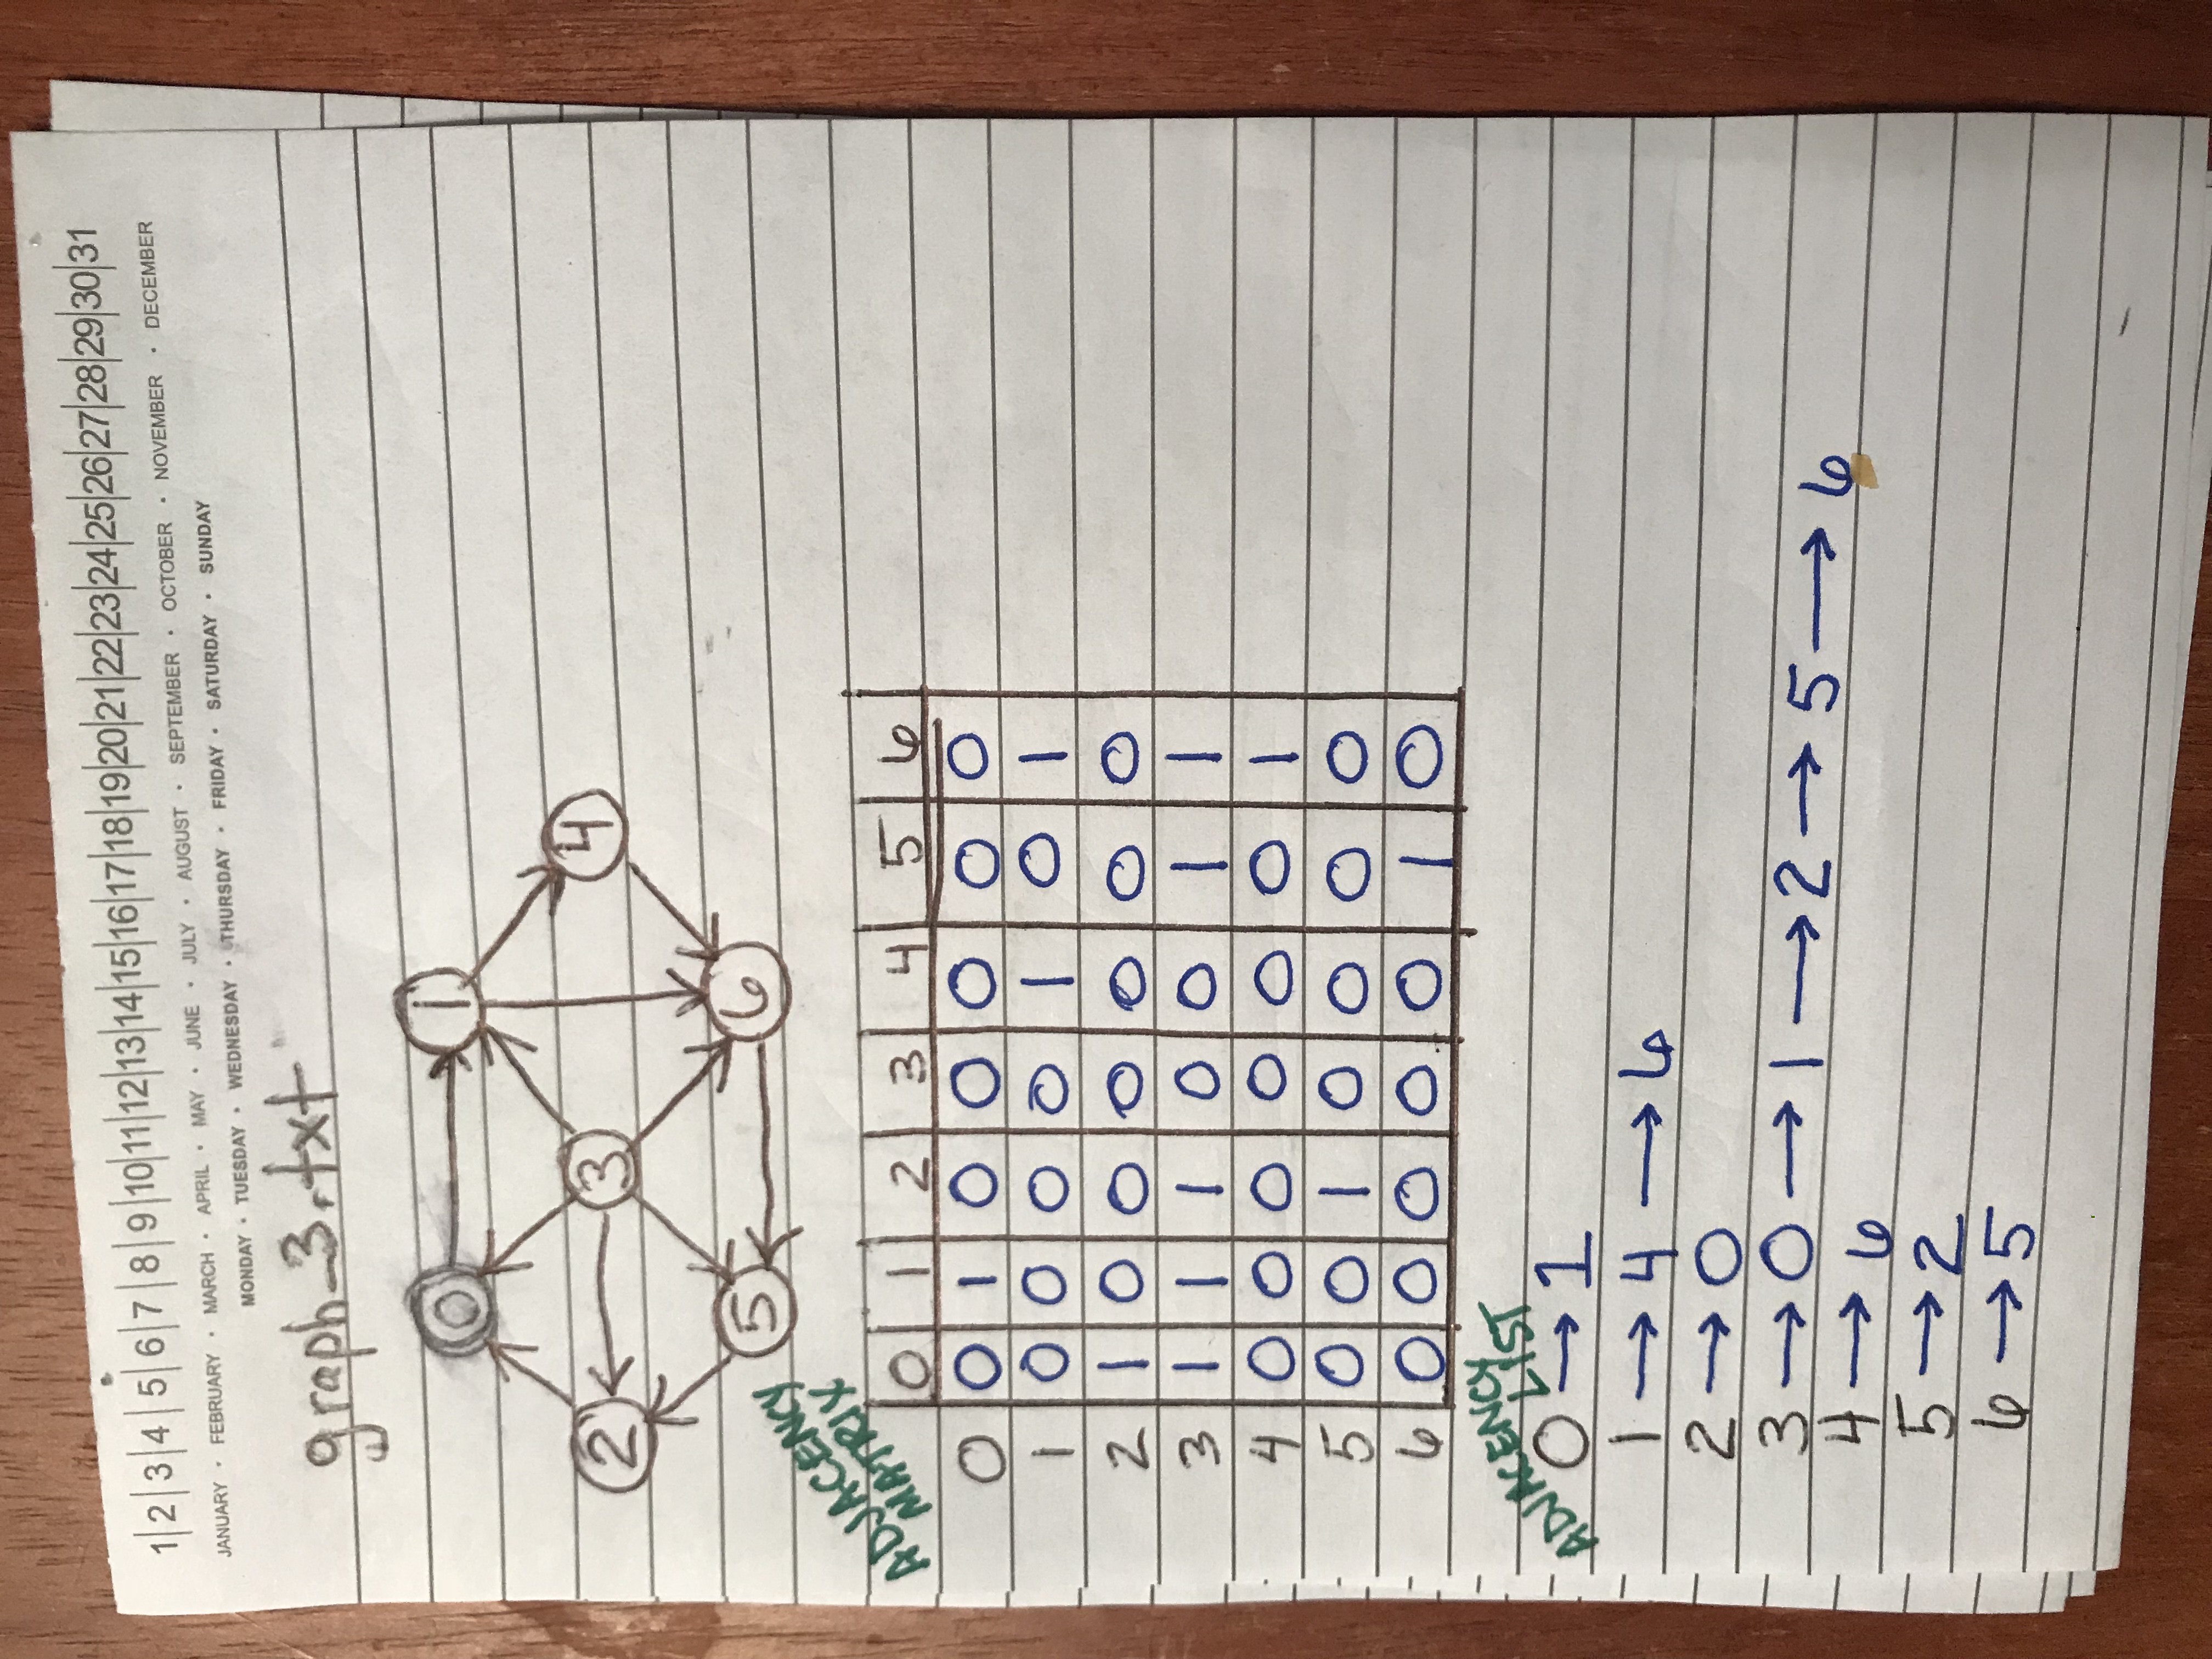 1|2|3|4|5|6|7|8|9|10|11|12|13|14|15|16|17|18|19|20|21|22|23|24|25|26|27|28|29|30|31
JANUARY • FEBRUARY • MARCH • APRIL • MAY • JUNE • JULY • AUGUST • SEPTEMBER • OCTOBER • NOVEMBER • DECEMBER
MONDAY • TUESDAY • WEDNESDAY • THURSDAY • FRIDAY • SATURDAY • SUNDAY
graph_3.txt
0 1
2 3 4
5 6
ADJACENCY
MATRIX
0 1 2 3 4 5 6
0 0 1 0 0 0 0 0
1 0 0 0 0 1 0 1
2 1 0 0 0 0 0 0
3 1 1 1 0 0 1 1
4 0 0 0 0 0 0 1
5 0 0 1 0 0 0 0
6 0 0 0 0 0 1 0
ADJACENCY
LIST
0 → 1
1 → 4 → 6
2 → 0
3 → 0 → 1 → 2 → 5 → 6
4 → 6
5 → 2
6 → 5